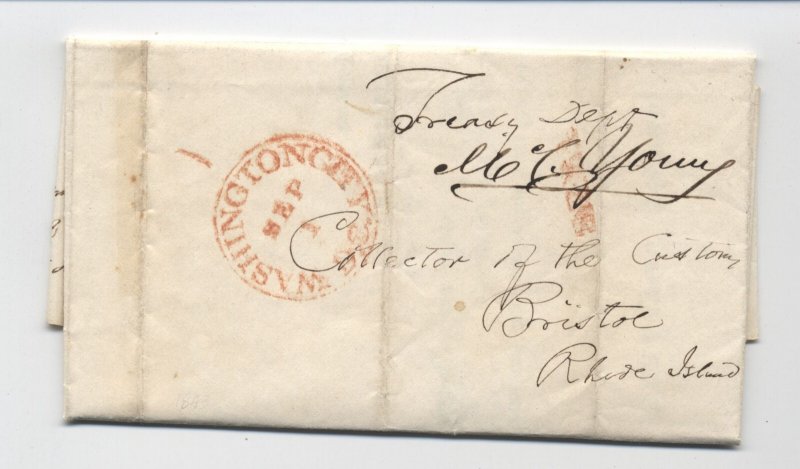 Treasy Dept
McC. Young
WASHINGTON CITY
SEP
1
Collector of the Customs
Bristol
Rhode Island